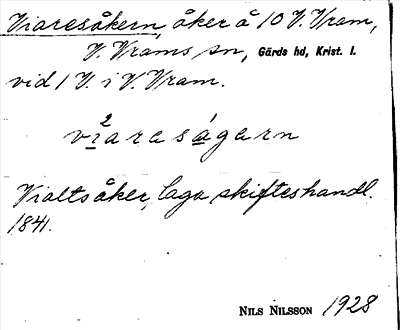 Viaresåkern, åker å 10 V. Vram,
V. Vrams sn, Gärds hd, Krist. l.
vid 1 V. i V. Vram.
2 1
viaresagern
Vialtsåker, laga skifteshandl.
1841.
NILS NILSSON 1928